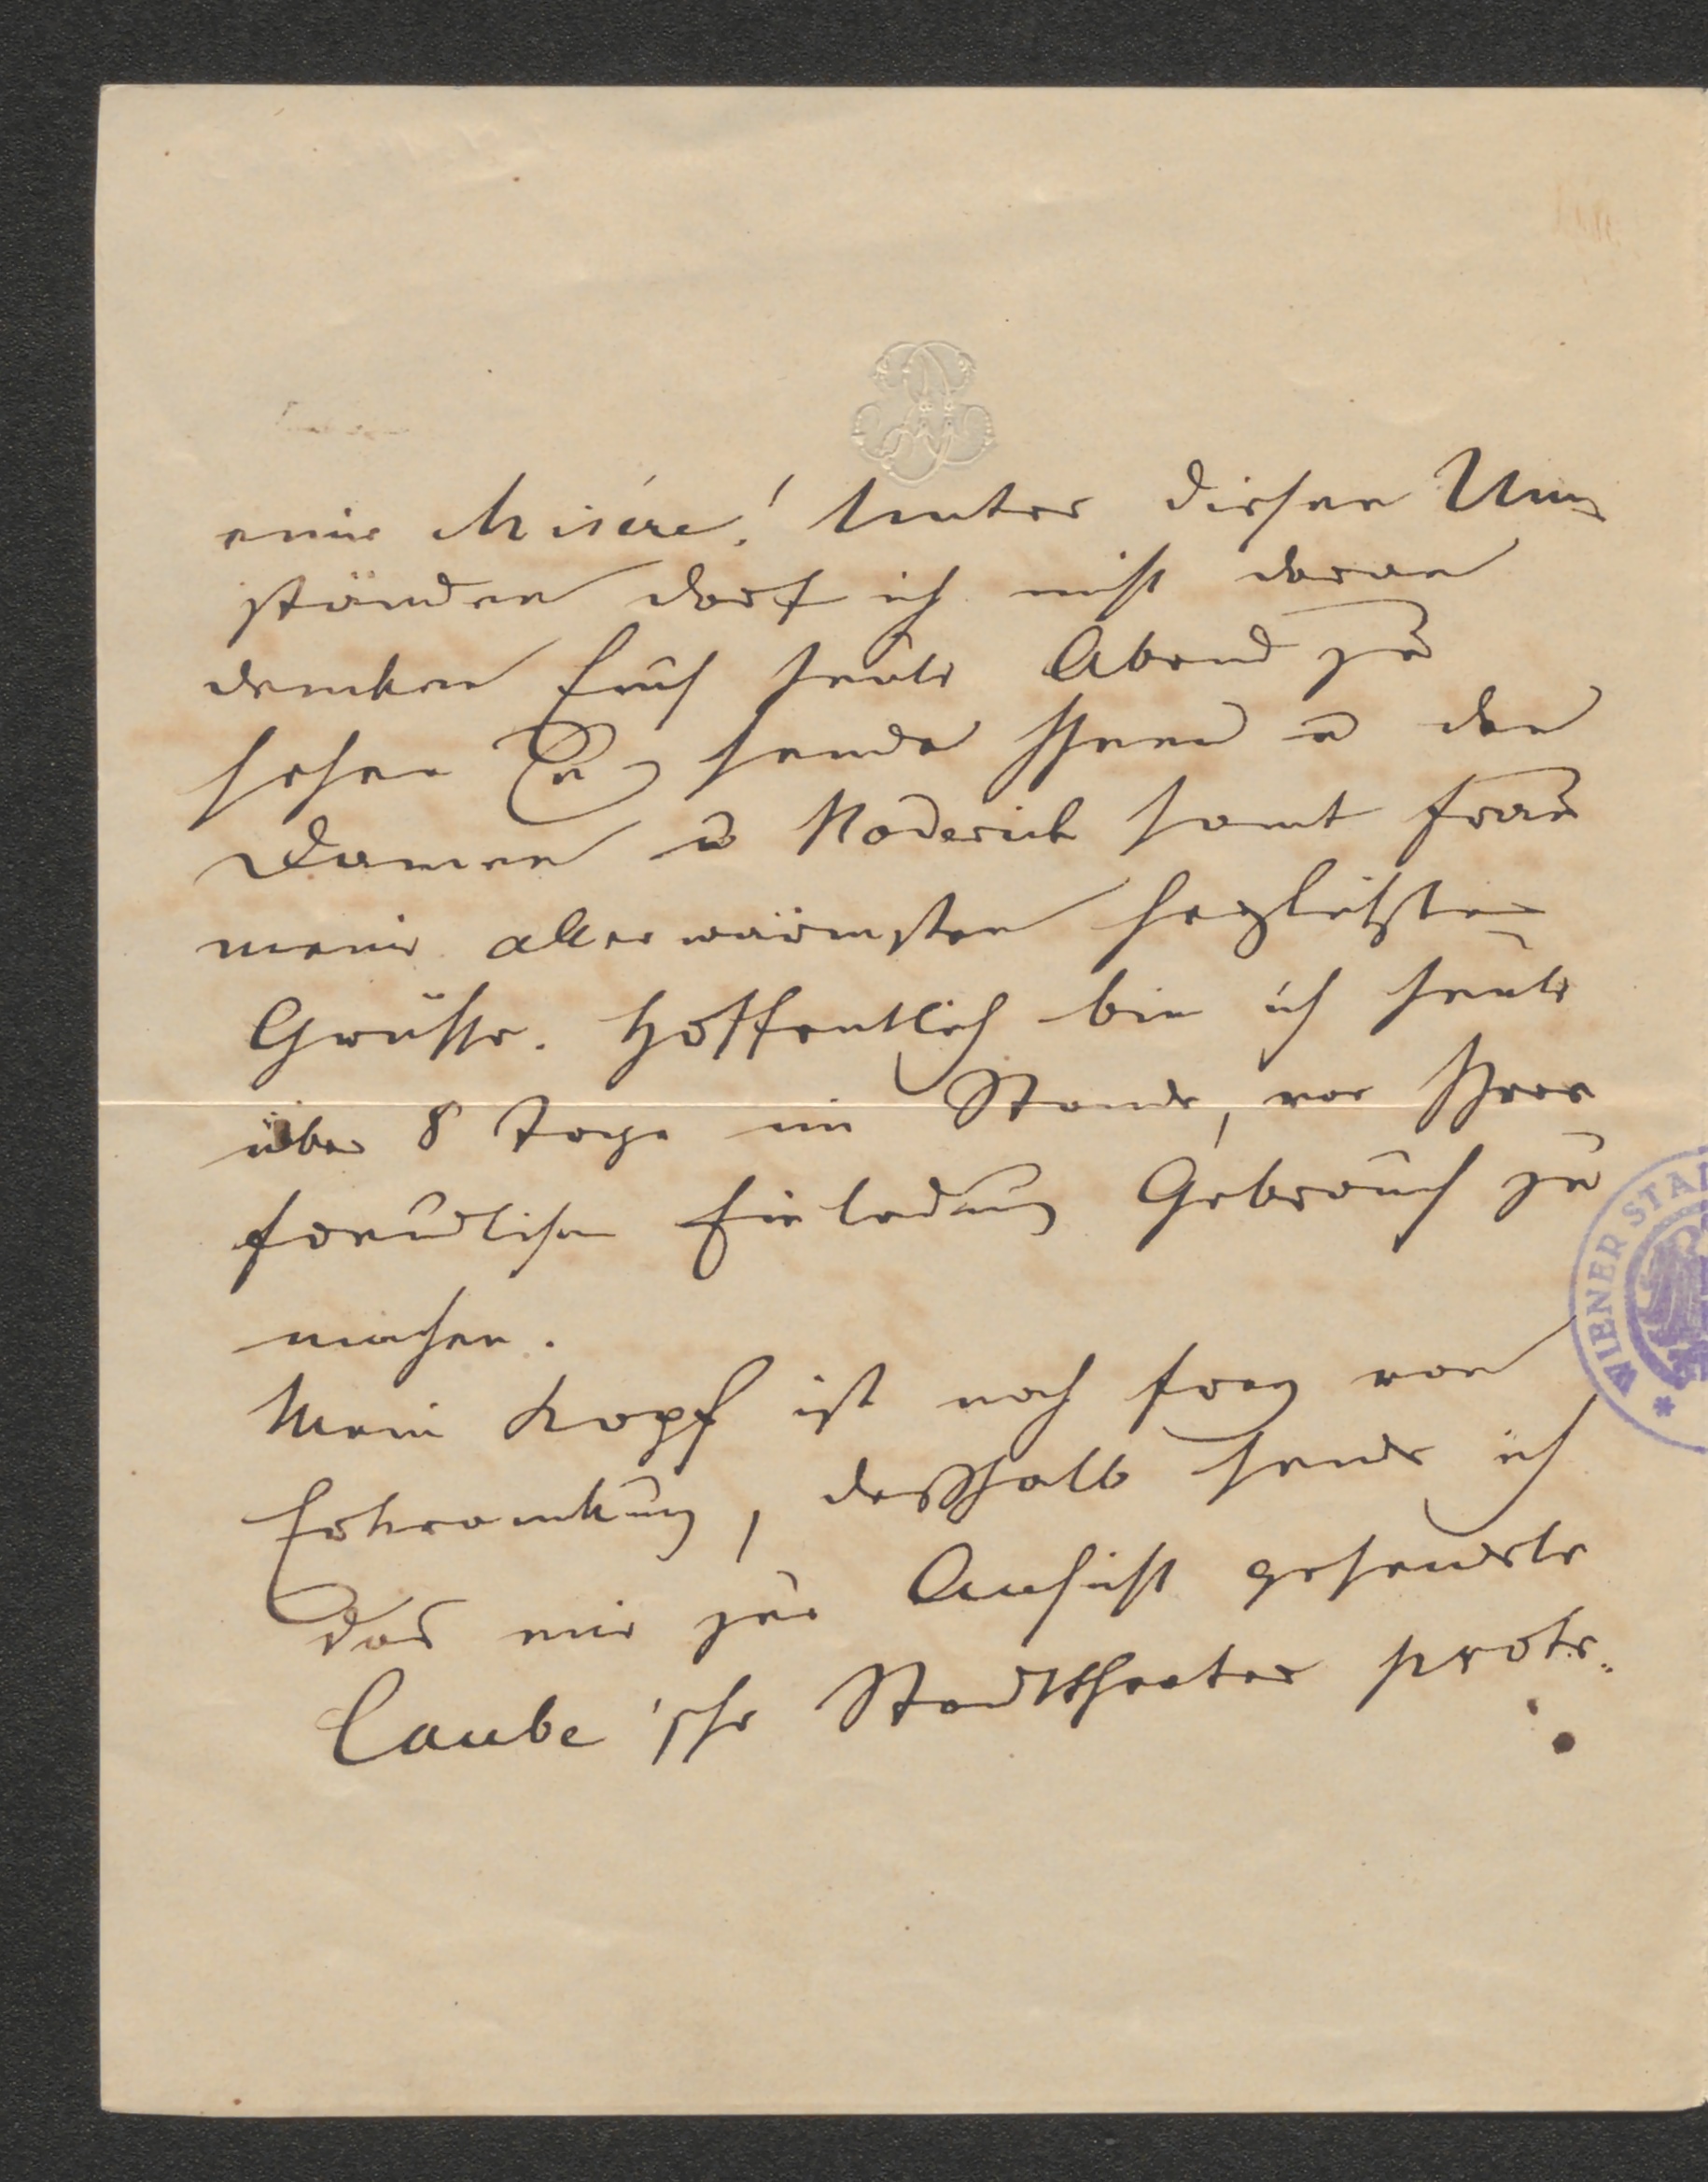 eine Misère! Unter diesen Um-
ständen darf ich nicht daran
denken Euch heute Abend zu
sehen u sende Ihnen u den
Damen u Roderich samt Frau
meine allerwärmsten herzlichsten
Grüße. Hoffentlich bin ich heute
über 8 Tage im Stande, von Ihrer
freundlichen Einladung Gebrauch zu
machen.
Mein Kopf ist noch von
Erkrankung, deßhalb sende ich
das mir zur Ansicht gesendete
Laube'sche Stadttheater
WIENER STA